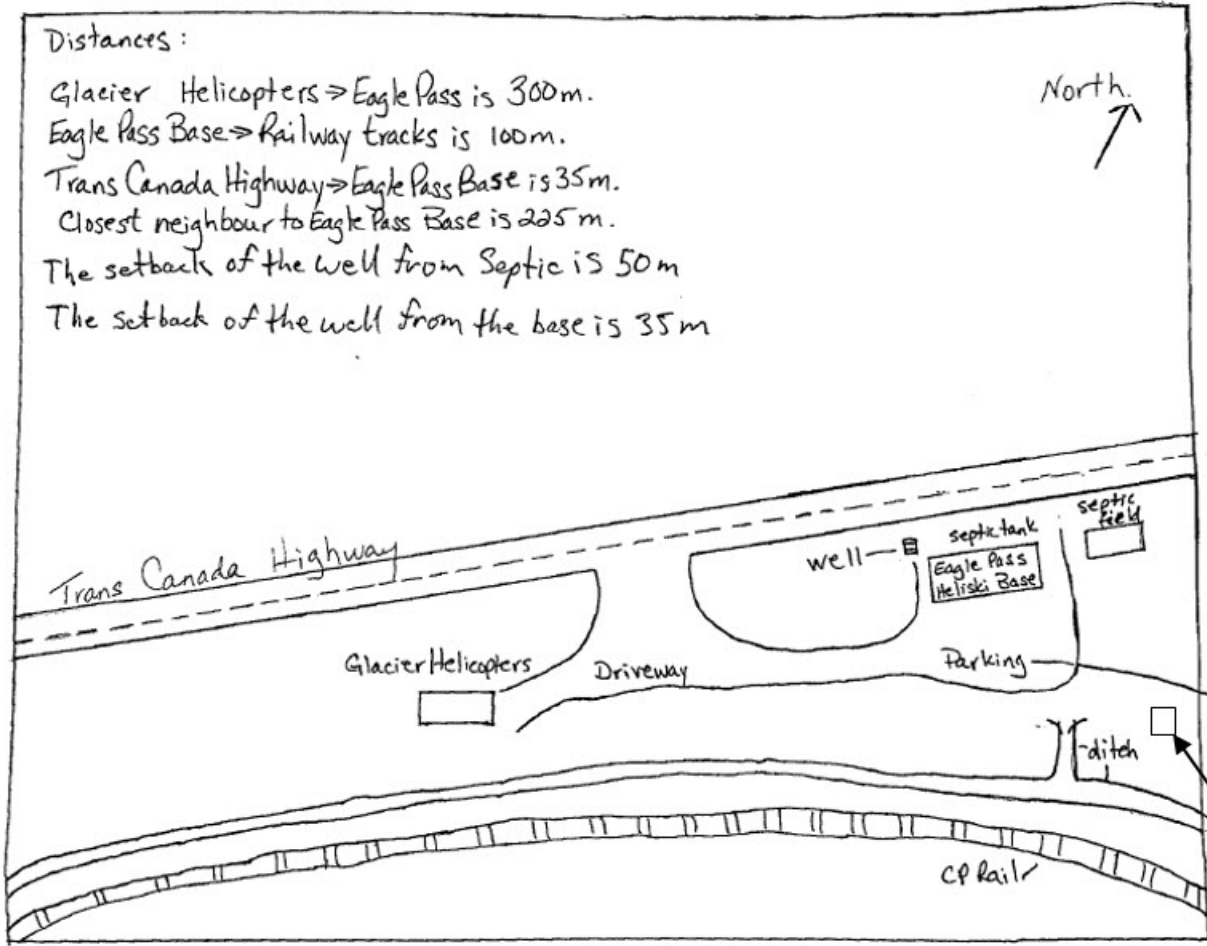 Distances:
Glacier Helicopters → Eagle Pass is 300m.
Eagle Pass Base → Railway tracks is 100m.
Trans Canada Highway → Eagle Pass Base is 35m.
Closest neighbour to Eagle Pass Base is 225m.
The setback of the well from Septic is 50m
The setback of the well from the base is 35m
North.
Trans Canada Highway
well
septic tank
septic
field
Eagle Pass
Heliski Base
Glacier Helicopters
Driveway
Parking
ditch
CP Rail